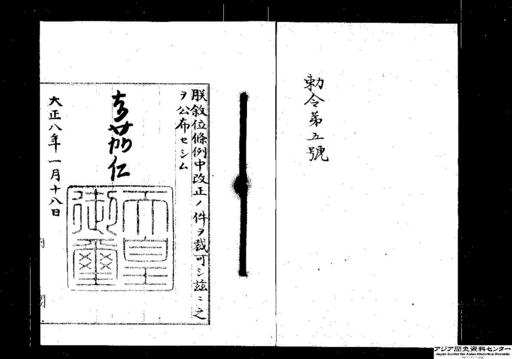 勅令第五號
朕敘位條例中改正ノ件ヲ裁可シ茲ニ之
ヲ公布セシム
嘉仁
天皇御璽
大正八年一月十八日
アジア歴史資料センター
Japan Center for Asian Historical Records